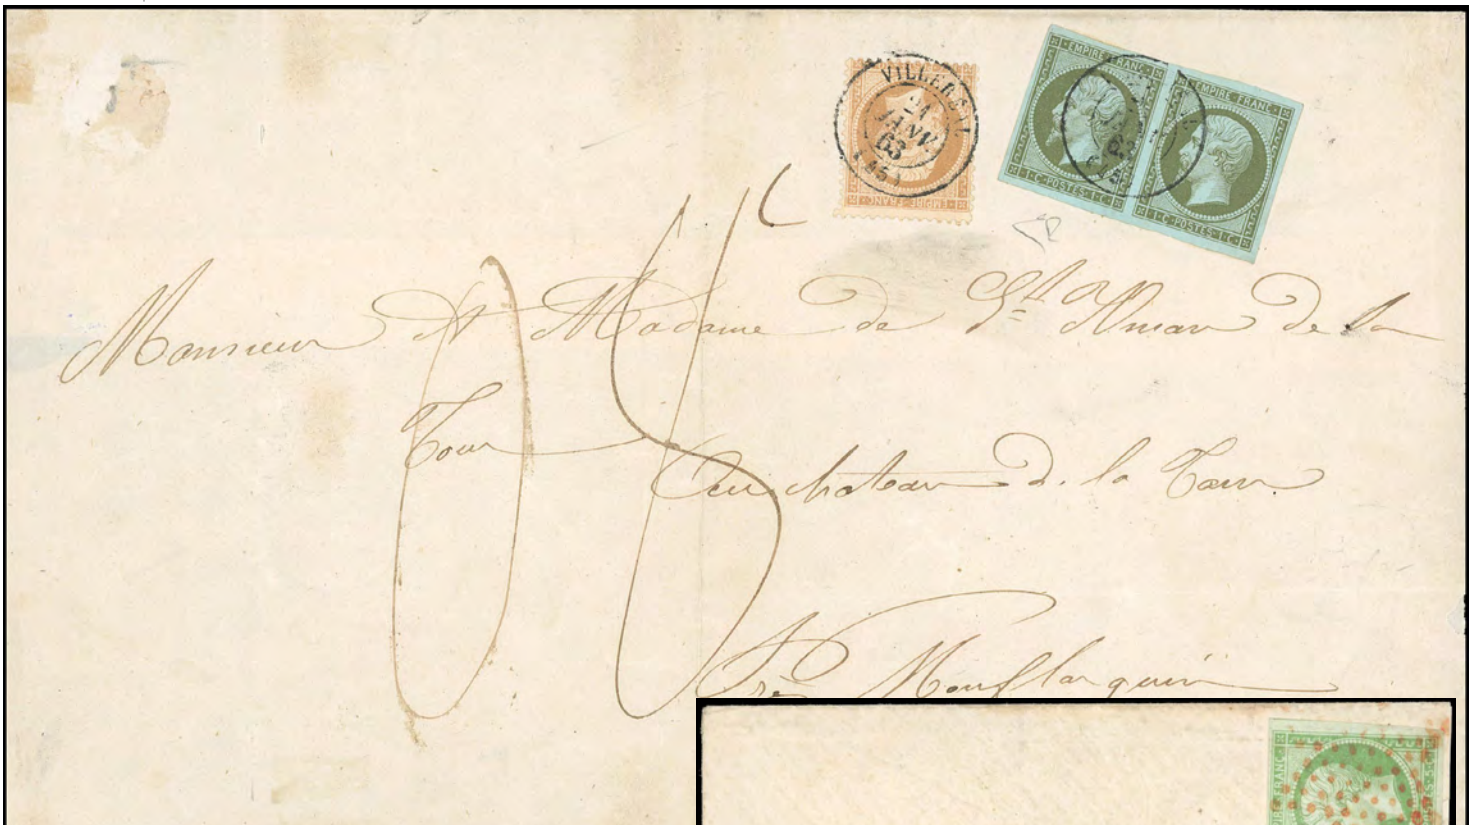 VILLERS
21
JANV.
63
(45)
EMPIRE FRANC
EMPIRE FRANC
EMPIRE FRANC
1·C·POSTES·1·C
1·C·POSTES·1·C
Monsieur et Madame de St Amar de la
Tour
Au chateau de la Tour
Près Monflanquin